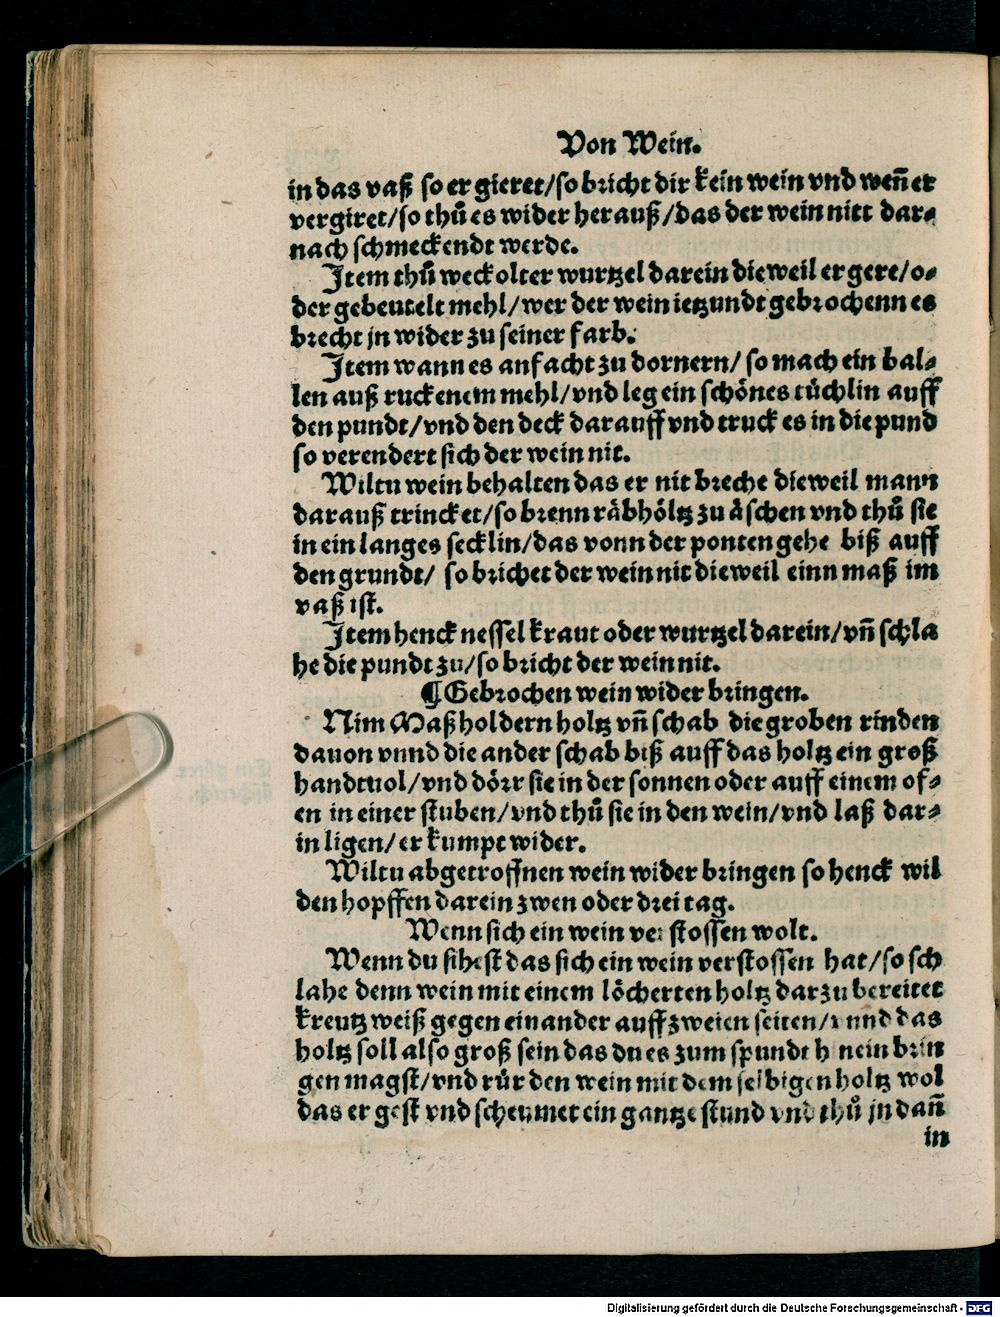 Von Wein.
in das vaß so er gieret/so bricht dir kein wein vnd weñ er
vergiret/so thů es wider herauß/das der wein nitt dar⸗
nach schmeckendt werde.
Item thů weckolter wurtzel darein dieweil er gere/o⸗
der gebeutelt mehl/wer der wein ietzundt gebrochenn es
brecht jn wider zu seiner farb.
Item wann es anfacht zu dornern/ so mach ein bal⸗
len auß ruckenem mehl/vnd leg ein schönes tüchlin auff
den pundt/vnd den deck darauff vnd truck es in die pund
so verendert sich der wein nit.
Wiltu wein behalten das er nit breche dieweil mann
darauß trincket/so brenn räbhöltz zu äschen vnd thů sie
in ein langes secklin/das vonn der ponten gehe biß auff
den grundt/ so brichet der wein nit dieweil einn maß im
vaß ist.
Item henck nessel kraut oder wurtzel darein/vñ schla
he die pundt zu/so bricht der wein nit.
¶ Gebrochen wein wider bringen.
Nim Maßholdern holtz vñ schab die groben rinden
dauon vnnd die ander schab biß auff das holtz ein groß
handtuol/vnd dörr sie in der sonnen oder auff einem of⸗
en in einer stuben/vnd thů sie in den wein/vnd laß dar⸗
in ligen/er kumpt wider.
Wiltu abgetroffnen wein wider bringen so henck wil
den hopffen darein zwen oder drei tag.
Wenn sich ein wein verstossen wolt.
Wenn du sihest das sich ein wein verstossen hat/so sch
lahe denn wein mit einem löcherten holtz darzu bereitet
kreutz weiß gegen einander auff zweien seiten/vnnd das
holtz soll also groß sein das du es zum spundt hinein brin
gen magst/vnd rür den wein mit dem selbigen holtz wol
das er gest vnd scheumet ein gantze stund vnd thů jn dañ
in
Digitalisierung gefördert durch die Deutsche Forschungsgemeinschaft - DFG